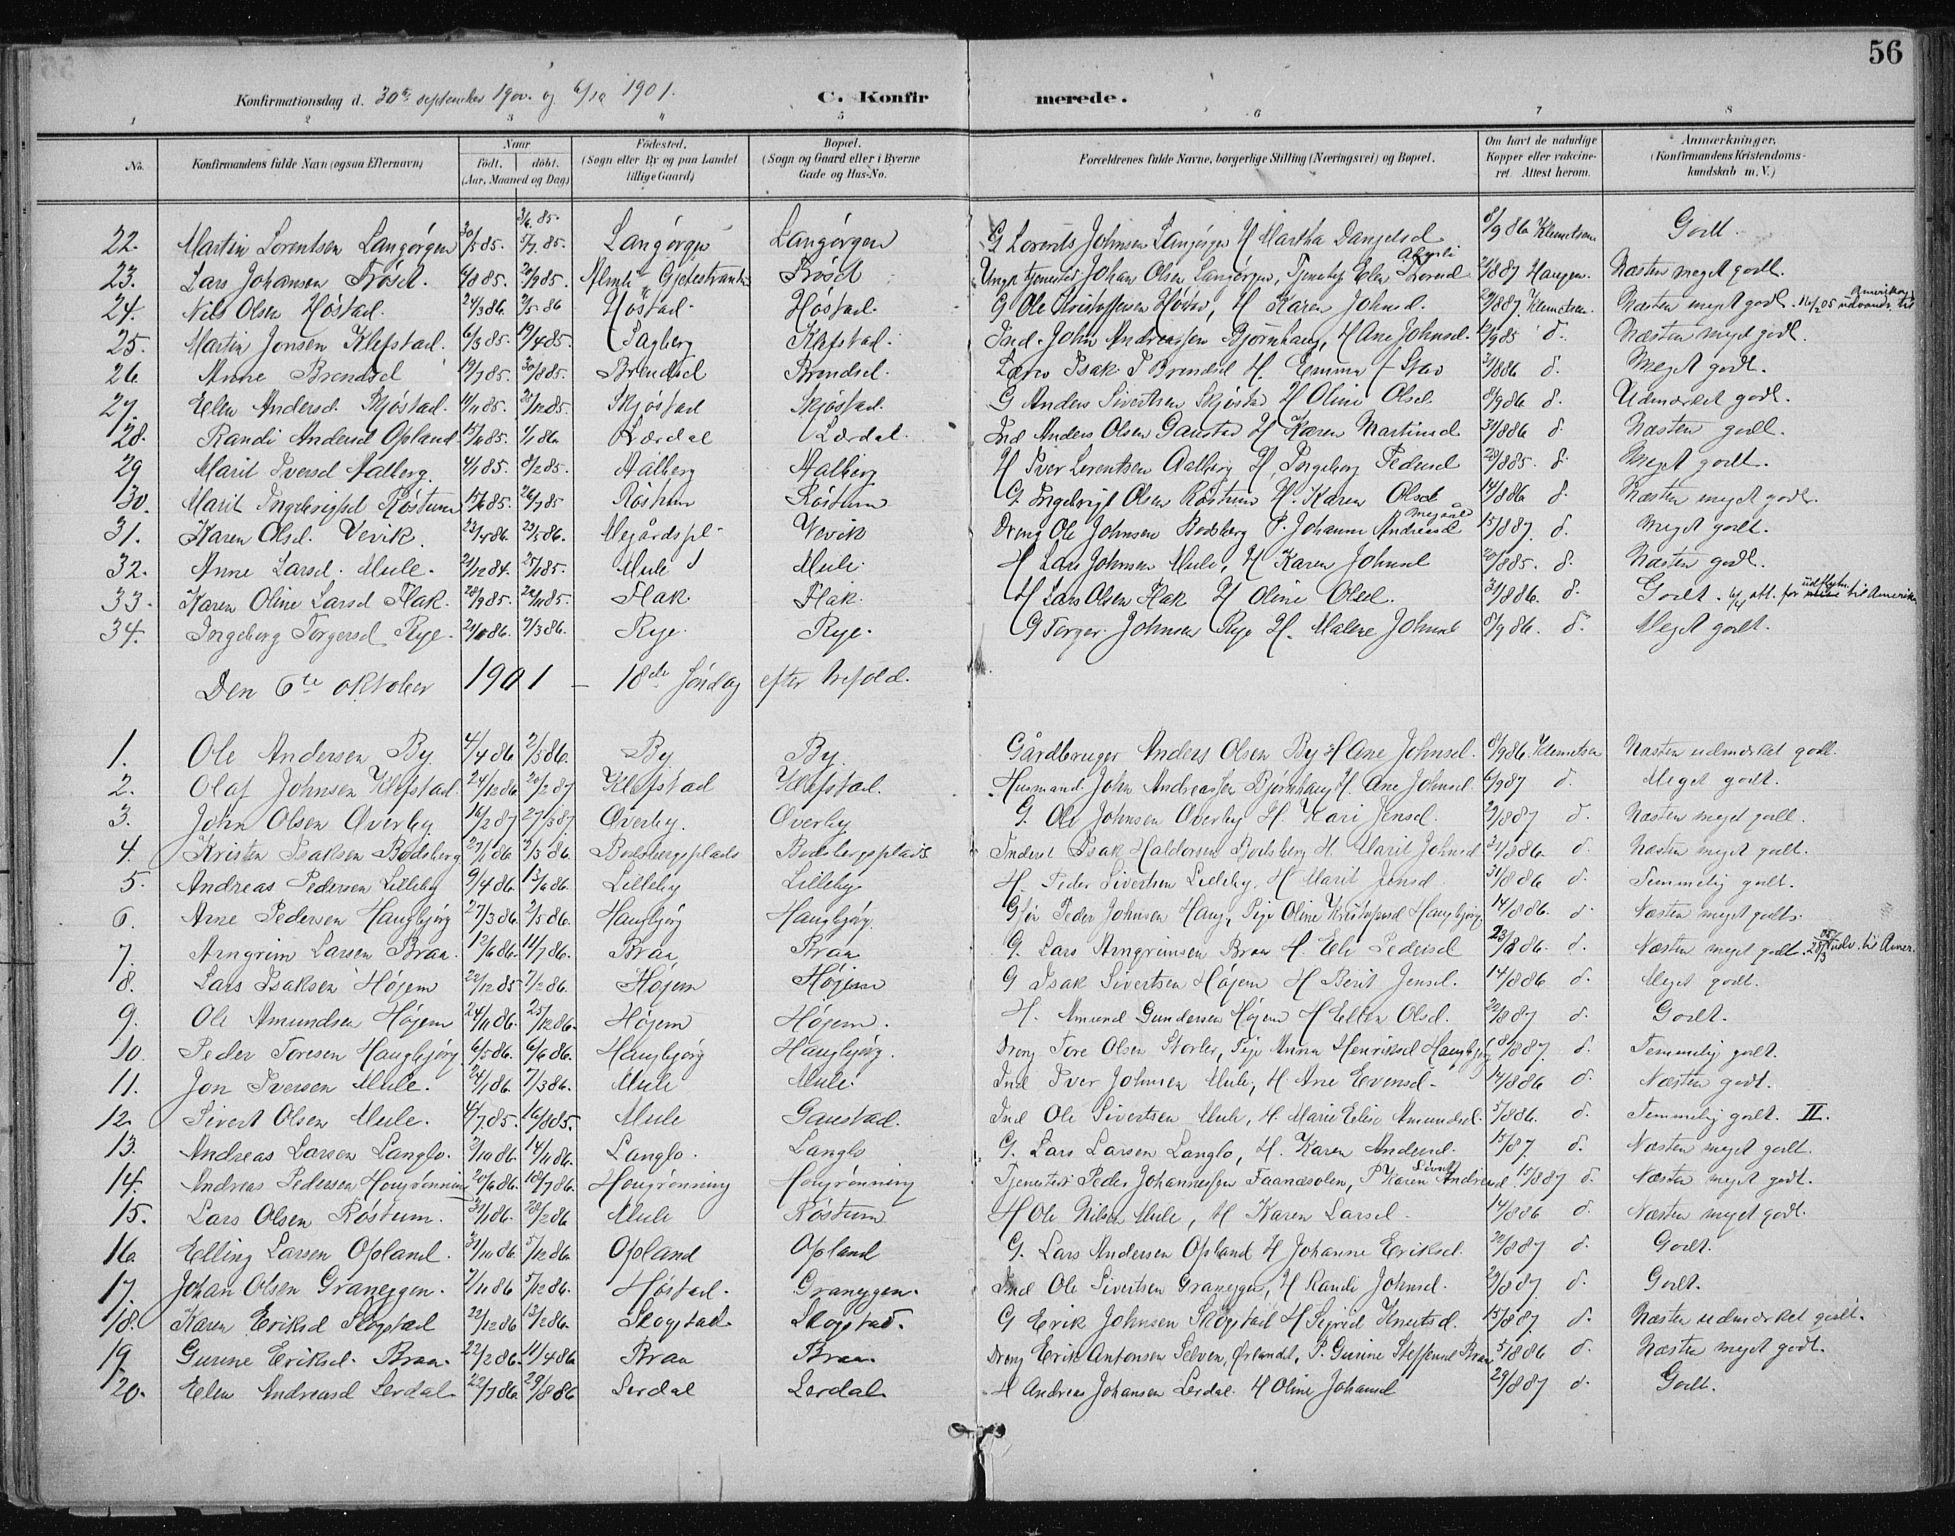 56
Konfirmationsdag d. 30te september 1900. og 6/10 1901.
C. Konfirmerede.
1 2 3 4 5 6 7 8
No. Konfirmandens fulde Navn (ogsaa Efternavn) Naar født. døbt. (Aar, Maaned og Dag) Fødested. (Sogn eller By og paa Landet tillige Gaard) Bopæl. (Sogn og Gaard eller i Byerne Gade og Hus-No. Forældrenes fulde Navne, borgerlige Stilling (Næringsvei) og Bopæl. Om havt de naturlige Kopper eller vakcineret. Attest herom. Anmærkninger. (Konfirmandens Kristendomskundskab m. V.)
22. Martin Lorentsen Langørgen 30/5 85. 5/7 85. Langørgen Langørgen G Lorents Johnsen Langørgen H Martha Danjelsd 8/9 86 Klemetsen Godt.
23. Lars Johansen Frøset. 6/8 85. 20/9 85. Frøset Johan Olsen Langørgen, 21/8 87 Haugen Næsten meget godt.
24. Nils Olsen Høstad. 24/3 86. 2/5 86 Høstad. Høstad. G Ole Kristoffersen Høstad, H Karen Johnsd. 29/8 87. Klemetsen. Næsten meget godt. 16/2 05 udvandr. til Amerika
25. Martin Jonsen Klefstad. 6/3 85. 19/4 85. Sagberg. Klefstad. Ind. John Andreassen Bjørnhaug, H Ane Johnsd. 12/9 85 d. Næsten meget godt.
26. Anne Brendsel 19/7 85. 30/8 85. Brendsel Brendsel. Isak J Brendsel H. Emma f. 31/8 86 d. Meget godt.
27. Elen Andersd. Skjøstad. 11/11 85. 26/12 85. Skjøstad Skjøstad. G Anders Sivertsen Skjøstad H Oline Olsd. 8/9 86 d. Udmærket godt.
28. Randi Andersd Opland 15/11 85. 1/1 86 Lærdal Lærdal. Ind Anders Olsen Gaustad H Karen Martinsd 31/8 86 d. Næsten godt.
29 Marit Iversd Aalberg. 4/1 85. 8/2 85. Aalberg Aalberg H Iver Lorentsen Aalberg H. Ingeborg Pedersd 23/8 85. d. Meget godt.
30. Marit Ingebrigtsd Røstum 15/6 85. 26/7 85 Røstum Røstum G. Ingebrigt Olsen Røstum H. Karen Olsd 14/8 86 d. Næsten meget godt.
31. Karen Olsd. Vevik. 22/4 86. 23/5 86. Megårdspl. Vevik Dreng Ole Johnsen Bodsberg P. Johanne Andersd Megård 15/8 87. d. Meget godt.
32. Anne Larsd. Mule. 21/12 84. 25/1 85. Mule Mule. H Lars Johnsen Mule, H Karen Johnsd 20/8 85. d. Næsten godt.
33. Karen Oline Larsd Flak. 28/9 85. 22/11 85. Flak Flak. H Lars Olsen Flak H Oline Olsd. 31/8 86. d. Godt. att. for udflytn. til Amerika
34. Ingeborg Torgersd Rye. 7/3 86. Rye. Rye. G Torger Johnsen Rye H. Malene Johnsd 8/9 86. d. Meget godt.
Den 6te oktober 1901 – 18de søndag efter trefold.
1. Ole Andersen By 4/4 86 2/5 86. By By. Gårdbruger Anders Olsen By H Ane Johnsd. 8/9 86. Klemetsen Næsten udmærket godt.
2. Olaf Johnsen Klefstad. 24/12 86 20/2 87 Klefstad Klefstad. Husmand John Andreassen Bjørnhaug H. Ane Johnsd. 6/9 87 d. Meget godt.
3. John Olsen Øverby 16/2 87 27/3 87. Øverby. Øverby G. Ole Johnsen Øverby H. Kari Jensd. 29/8 87 d. Næsten meget godt.
4. Kristen Isaksen Bodsberg 27/1 86. 2/5 86. Bodsbergsplads Bodsbergsplads Inderst Isak Haldorsen Bodsberg H Marit Johnsd 31/8 86. d. Næsten meget godt.
5. Andreas Pedersen Lilleby 9/4 86. 13/6 86. Lilleby Lilleby. H. Peder Sivertsen Lilleby, H Marit Jonsd. 31/8 86 d. Temmelig godt.
6 Arne Pedersen Haugbjørg 27/3 86. 2/5 86. Haugbjørg Haugbjørg. Peder Johnsen Haug, Pige Oline Kristofersd Haugbjørg. 14/8 86. d. Næsten meget godt.
7. Arngrim Larsen Braa. 12/6 86. 11/7 86. Braa Braa G. Lars Arngrimsen Braa H. Eli Pedersd 23/8 86. d. Næsten meget godt. 28/3 05 udv. til Amer.
8. Lars Isaksen Højem 22/12 85 7/2 86. Højem Højem G Isak Sivertsen Højem H Berit Jensd. 14/8 86 d. Meget godt.
9. Ole Amundsen Højem 24/11 86. 25/12 86. Højem Højem. H. Amund Gundersen Højem H Ellen Olsd. 22/8 87 d. Godt.
10. Peder Toresen Haugbjørg. 6/5 86. 6/6 86. Haugbjørg Haugbjørg. Dreng Tore Olsen Storler, Pige Anna Henriksd Haugbjørg 18/8 87. d. Temmelig godt.
11. Jon Iversen Mule. 24/1 86. 7/3 86. Mule Mule. Ind Iver Johnsen Mule, H. Ane Evensd. 14/8 86 d. Næsten godt.
12. Sivert Olsen Mule. 4/7 85. 16/8 85. Mule Gaustad. Ind Ole Sivertsen Mule, H. Marie Elise Amundsd. 5/8 86. d. Temmelig godt. II.
13. Andreas Larsen Langlo. 2/10 86. 14/11 86. Langlo. Langlo G. Lars Larsen Langlo, H. Karen Andersd. 15/87. d. Næsten meget godt.
14. Andreas Pedersen Hongrønning 20/6 86. 18/7 86. Hongrønning Hongrønning Tjenestedr. Peder Johannessen Faanæsolen, P Karen Andreasd 15/8 87 d. Næsten meget godt.
15. Lars Olsen Røstum. 31/1 86. 28/2 86 Mule Røstum H Ole Nilsen Mule, H Karen Larsd. 14/8 86 d. Næsten meget godt.
16. Elling Larsen Opland. 31/10 86. 5/12 86. Opland Opland G. Lars Andersen Opland H Johanne Eriksd. 22/8 87 d. Godt.
17. Johan Olsen Graneggen. 7/11 86 5/12 86. Høstad. Graneggen. Ind Ole Sivertsen Graneggen, H Randi Johnsd. 29/8 87. d. Godt.
18. Karen Eriksd Skogstad 22/12 86 13/2 86. Skogstad. Skogstad. G Erik Johnsen Skogstad H Sigrid Knutsd. 15/8 87. d. Næsten udmærket godt.
19. Gurine Eriksd. Braa. 22/2 86. 11/4 86 Braa Braa. Dreng Erik Antonsen Selven, Ørlandet, P. Gurine Steffensd Braa 5/8 86 d. Næsten meget godt.
20. Elen Andreasd Lerdal 22/7 86. 29/8 86 Lerdal Lerdal H Andreas Johansen Lerdal. H Oline Johansd 29/8 87 d. Godt.